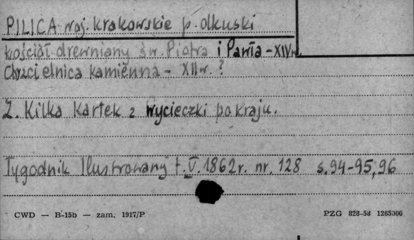 PILICA woj. krakowskie p. olkuski
kościół drewniany św. Piotra i Pawła - XIV w.
Chrzcielnica kamienna - XII w. ?
Z. Kilka kartek z wycieczki po kraju.
Tygodnik Ilustrowany t. V. 1862 r. nr. 128 s. 94-95, 96
CWD — B-15b — zam. 1917/P PZG 828-58 1265000